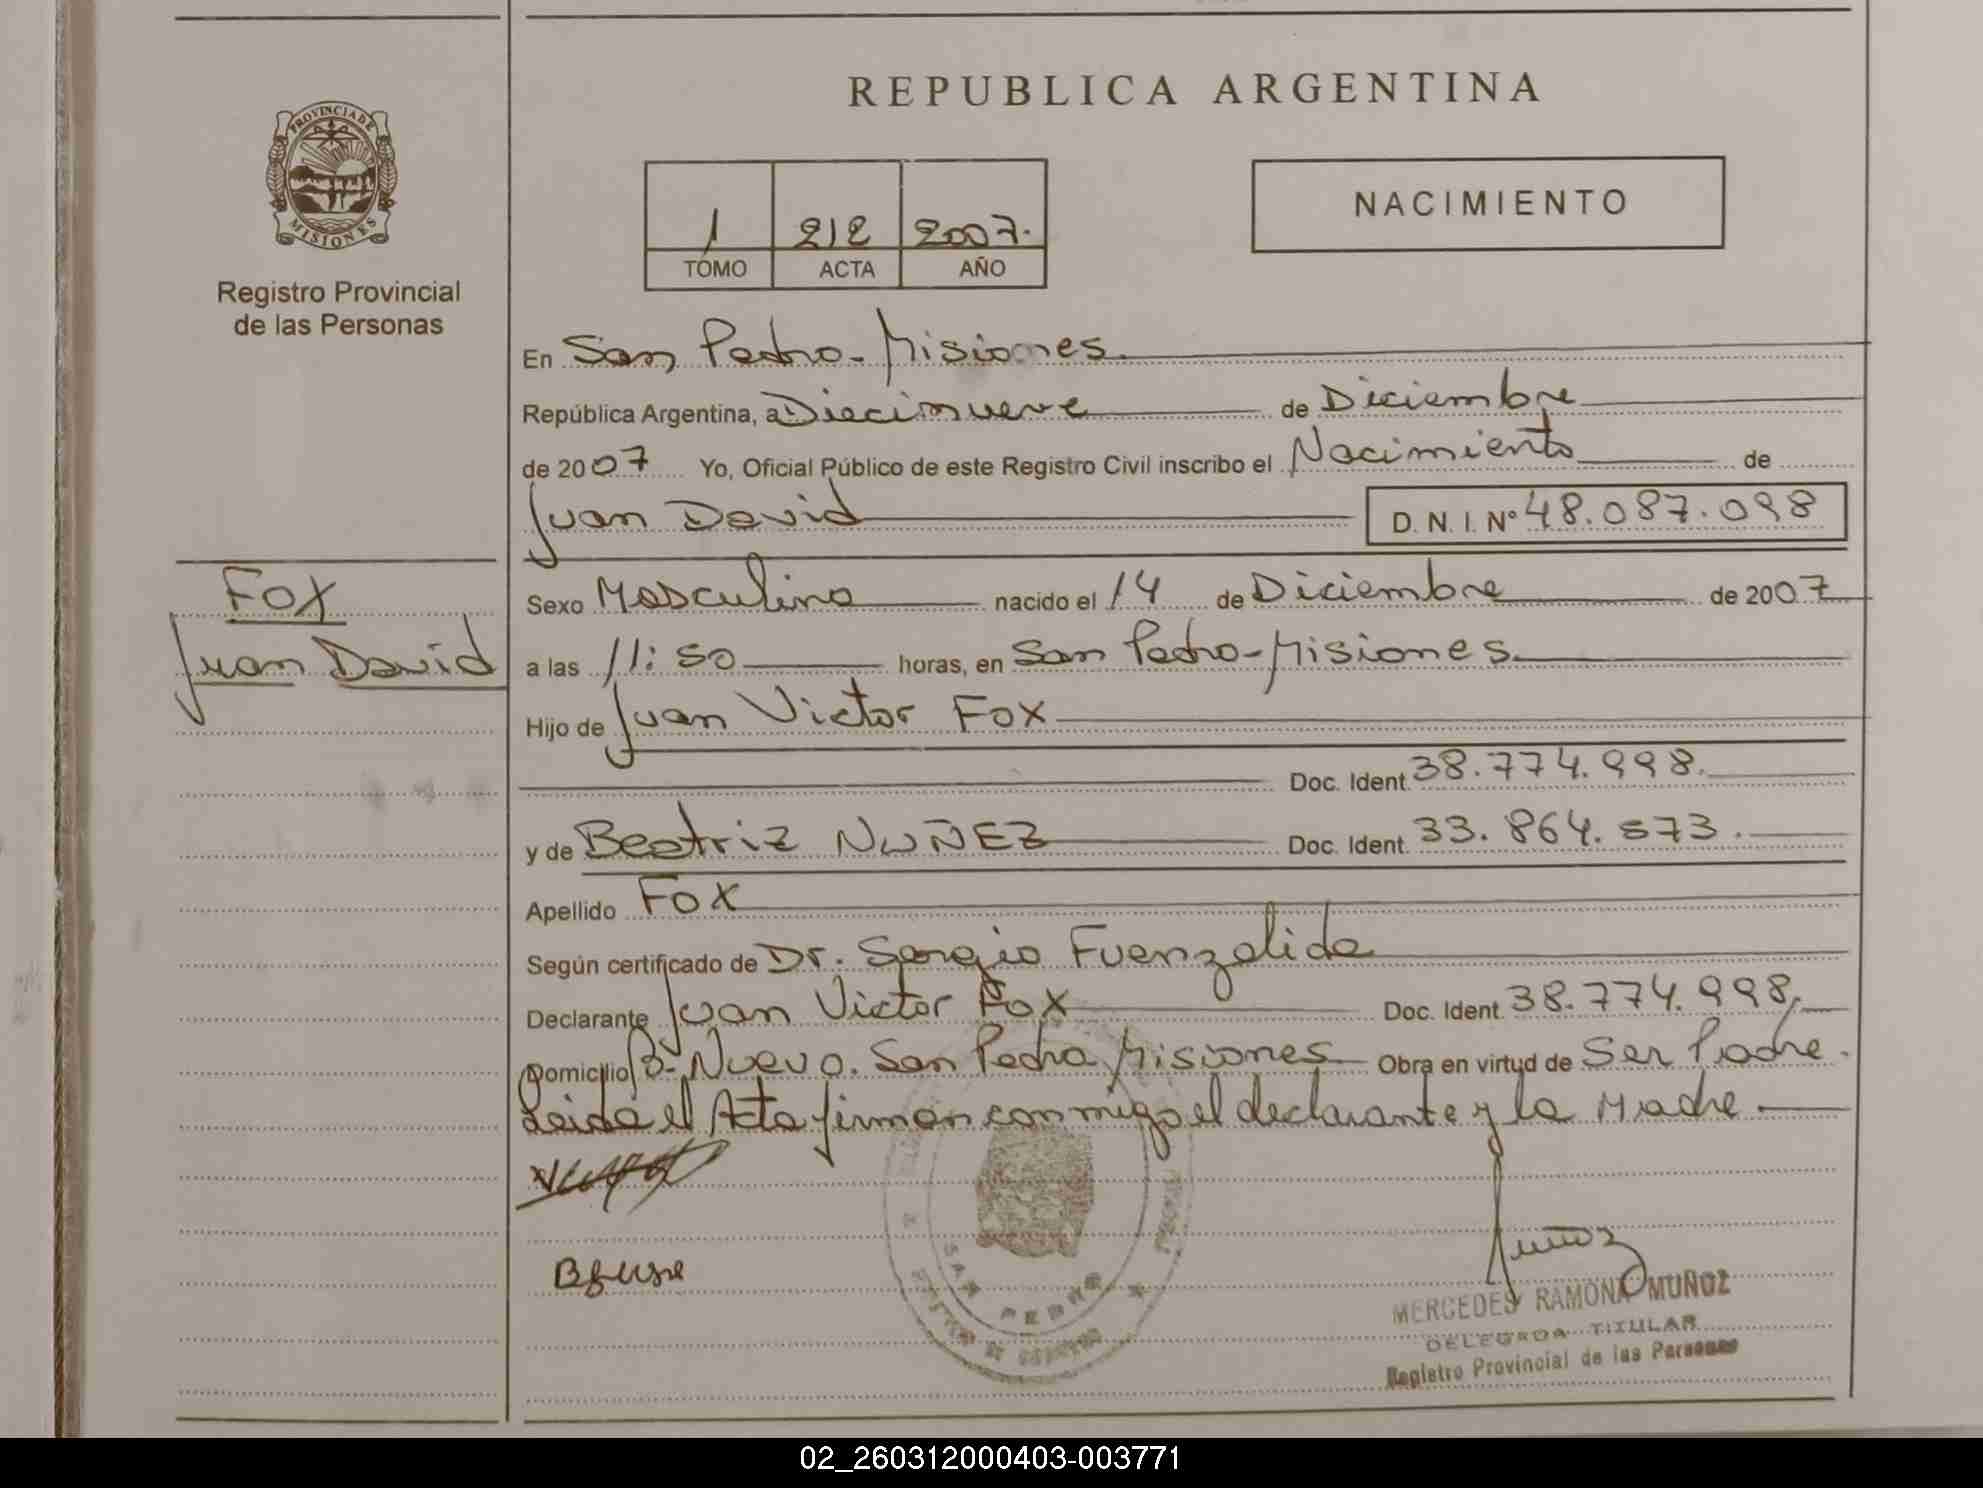 REPUBLICA ARGENTINA
PROVINCIA DE
MISIONES
Registro Provincial
de las Personas
1 212 2007.
TOMO ACTA AÑO
NACIMIENTO
En San Pedro - Misiones
República Argentina, a Diecinueve de Diciembre
de 2007 Yo, Oficial Público de este Registro Civil inscribo el Nacimiento de
Juan David D. N. I. Nº 48.087.098
Fox
Juan David
Sexo Masculino nacido el 14 de Diciembre de 2007
a las 11:50 horas, en San Pedro - Misiones
Hijo de Juan Victor Fox
Doc. Ident. 38.774.998.
y de Beatriz NUÑEZ Doc. Ident. 33.864.573.
Apellido Fox
Según certificado de Dr. Sergio Fuenzalida
Declarante Juan Victor Fox Doc. Ident. 38.774.998.
Domicilio B- Nuevo. San Pedro Misiones Obra en virtud de Ser Padre.
Leida el Acta firman conmigo el declarante y la Madre
SAN PEDRO
MERCEDES RAMONA MUÑOZ
DELEGADA TITULAR
Registro Provincial de las Personas
02_260312000403-003771